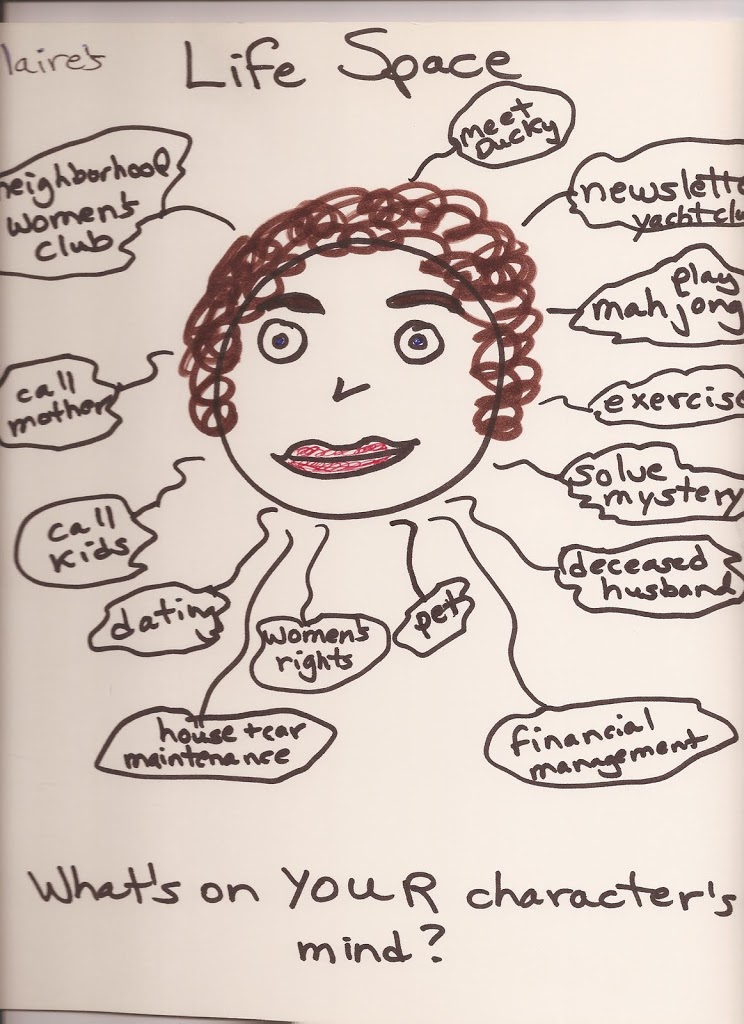 laire's
Life Space
meet
Ducky
neighborhood
women's
club
newslett
yacht clu
play
mah jong
call
mother
exercise
solve
mystery
call
kids
deceased
husband
dating
women's
rights
pet
house + car
maintenance
financial
management
What's on YOUR character's
mind?